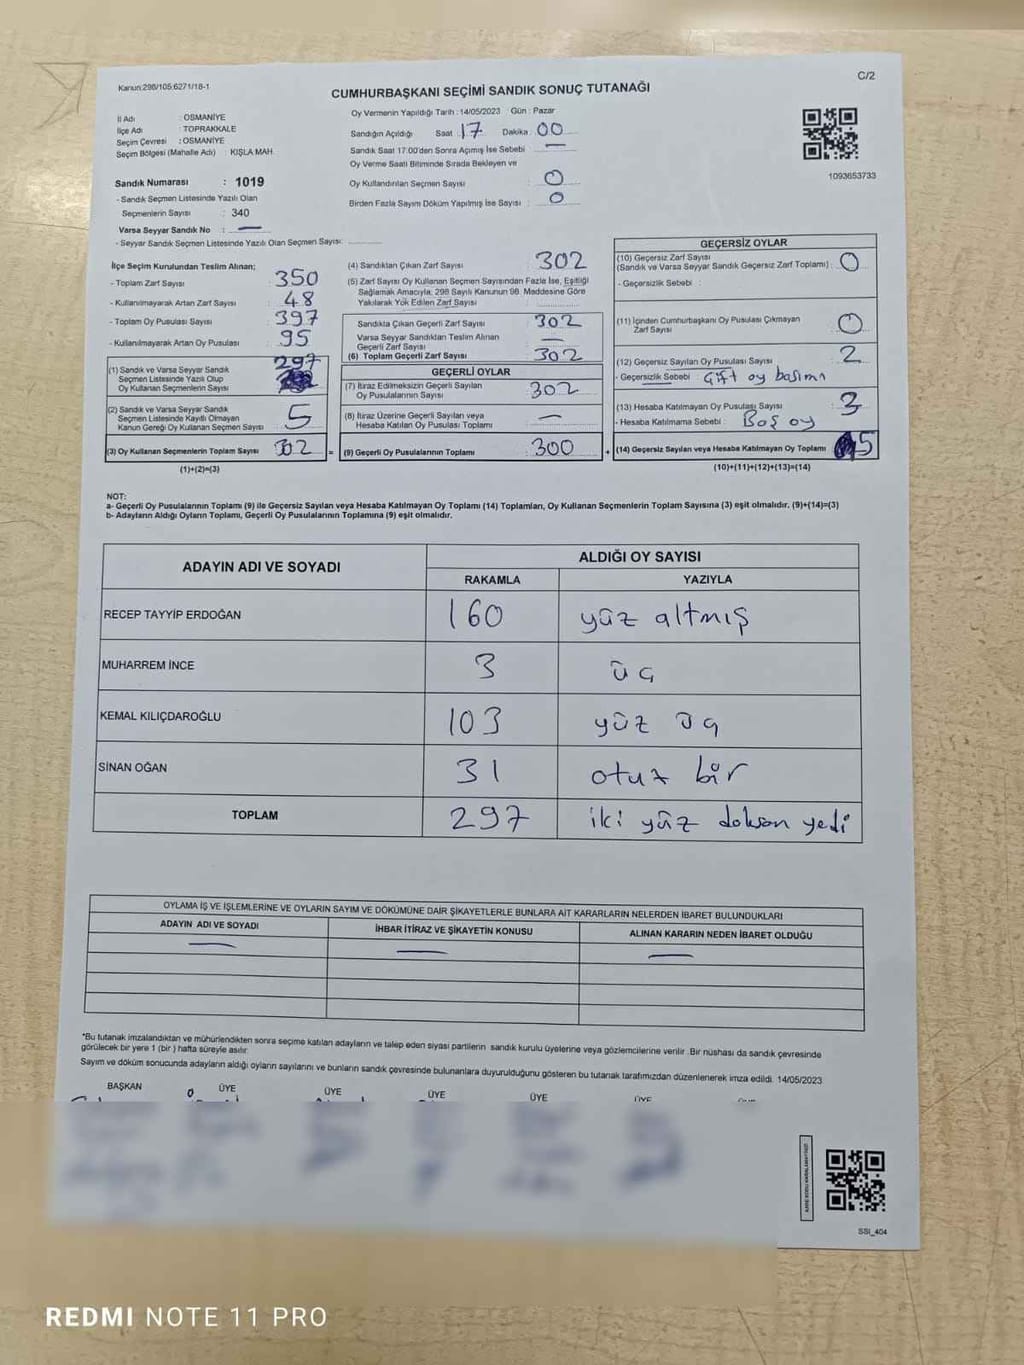 Kanun:298/105:6271/18-1
C/2
CUMHURBAŞKANI SEÇİMİ SANDIK SONUÇ TUTANAĞI
İl Adı : OSMANİYE
İlçe Adı : TOPRAKKALE
Seçim Çevresi : OSMANİYE
Seçim Bölgesi (Mahalle Adı) : KIŞLA MAH.
Oy Vermenin Yapıldığı Tarih : 14/05/2023 Gün : Pazar
Sandığın Açıldığı Saat : 17 Dakika : 00
Sandık Saat 17:00'den Sonra Açımış İse Sebebi : —
Oy Verme Saati Bitiminde Sırada Bekleyen ve
Oy Kullandırılan Seçmen Sayısı : 0
Birden Fazla Sayım Döküm Yapılmış İse Sayısı : 0
1093653733
Sandık Numarası : 1019
- Sandık Seçmen Listesinde Yazılı Olan
Seçmenlerin Sayısı : 340
Varsa Seyyar Sandık No : —
- Seyyar Sandık Seçmen Listesinde Yazılı Olan Seçmen Sayısı:
İlçe Seçim Kurulundan Teslim Alınan;
- Toplam Zarf Sayısı : 350
- Kullanılmayarak Artan Zarf Sayısı : 48
- Toplam Oy Pusulası Sayısı : 397
- Kullanılmayarak Artan Oy Pusulası : 95
(1) Sandık ve Varsa Seyyar Sandık
Seçmen Listesinde Yazılı Olup
Oy Kullanan Seçmenlerin Sayısı : 297
(2) Sandık ve Varsa Seyyar Sandık
Seçmen Listesinde Kayıtlı Olmayan
Kanun Gereği Oy Kullanan Seçmen Sayısı : 5
(3) Oy Kullanan Seçmenlerin Toplam Sayısı : 302
(1)+(2)=(3)
(4) Sandıktan Çıkan Zarf Sayısı : 302
(5) Zarf Sayısı Oy Kullanan Seçmen Sayısından Fazla İse, Eşitliği
Sağlamak Amacıyla; 298 Sayılı Kanunun 98. Maddesine Göre
Yakılarak Yok Edilen Zarf Sayısı :
Sandıkta Çıkan Geçerli Zarf Sayısı : 302
Varsa Seyyar Sandıktan Teslim Alınan
Geçerli Zarf Sayısı : —
(6) Toplam Geçerli Zarf Sayısı : 302
GEÇERLİ OYLAR
(7) İtiraz Edilmeksizin Geçerli Sayılan
Oy Pusulalarının Sayısı : 302
(8) İtiraz Üzerine Geçerli Sayılan veya
Hesaba Katılan Oy Pusulası Toplamı : —
= (9) Geçerli Oy Pusulalarının Toplamı : 300
GEÇERSİZ OYLAR
(10) Geçersiz Zarf Sayısı
(Sandık ve Varsa Seyyar Sandık Geçersiz Zarf Toplamı) : 0
- Geçersizlik Sebebi :
(11) İçinden Cumhurbaşkanı Oy Pusulası Çıkmayan
Zarf Sayısı : 0
(12) Geçersiz Sayılan Oy Pusulası Sayısı : 2
- Geçersizlik Sebebi : Çift oy basımı
(13) Hesaba Katılmayan Oy Pusulası Sayısı : 3
- Hesaba Katılmama Sebebi : Boş oy
+ (14) Geçersiz Sayılan veya Hesaba Katılmayan Oy Toplamı : 5
(10)+(11)+(12)+(13)=(14)
NOT:
a- Geçerli Oy Pusulalarının Toplamı (9) ile Geçersiz Sayılan veya Hesaba Katılmayan Oy Toplamı (14) Toplamları, Oy Kullanan Seçmenlerin Toplam Sayısına (3) eşit olmalıdır. (9)+(14)=(3)
b- Adayların Aldığı Oyların Toplamı, Geçerli Oy Pusulalarının Toplamına (9) eşit olmalıdır.
ADAYIN ADI VE SOYADI
ALDIĞI OY SAYISI
RAKAMLA YAZIYLA
RECEP TAYYİP ERDOĞAN 160 yüz altmış
MUHARREM İNCE 3 üç
KEMAL KILIÇDAROĞLU 103 yüz üç
SİNAN OĞAN 31 otuz bir
TOPLAM 297 iki yüz doksan yedi
OYLAMA İŞ VE İŞLEMLERİNE VE OYLARIN SAYIM VE DÖKÜMÜNE DAİR ŞİKAYETLERLE BUNLARA AİT KARARLARIN NELERDEN İBARET BULUNDUKLARI
ADAYIN ADI VE SOYADI İHBAR İTİRAZ VE ŞİKAYETİN KONUSU ALINAN KARARIN NEDEN İBARET OLDUĞU
— — —
*Bu tutanak imzalandıktan ve mühürlendikten sonra seçime katılan adayların ve talep eden siyasi partilerin sandık kurulu üyelerine veya gözlemcilerine verilir .Bir nüshası da sandık çevresinde
görülecek bir yere 1 (bir ) hafta süreyle asılır.
Sayım ve döküm sonucunda adayların aldığı oyların sayılarını ve bunların sandık çevresinde bulunanlara duyurulduğunu gösteren bu tutanak tarafımızdan düzenlenerek imza edildi. 14/05/2023
BAŞKAN ÜYE ÜYE ÜYE ÜYE ÜYE
SSI_404
REDMI NOTE 11 PRO